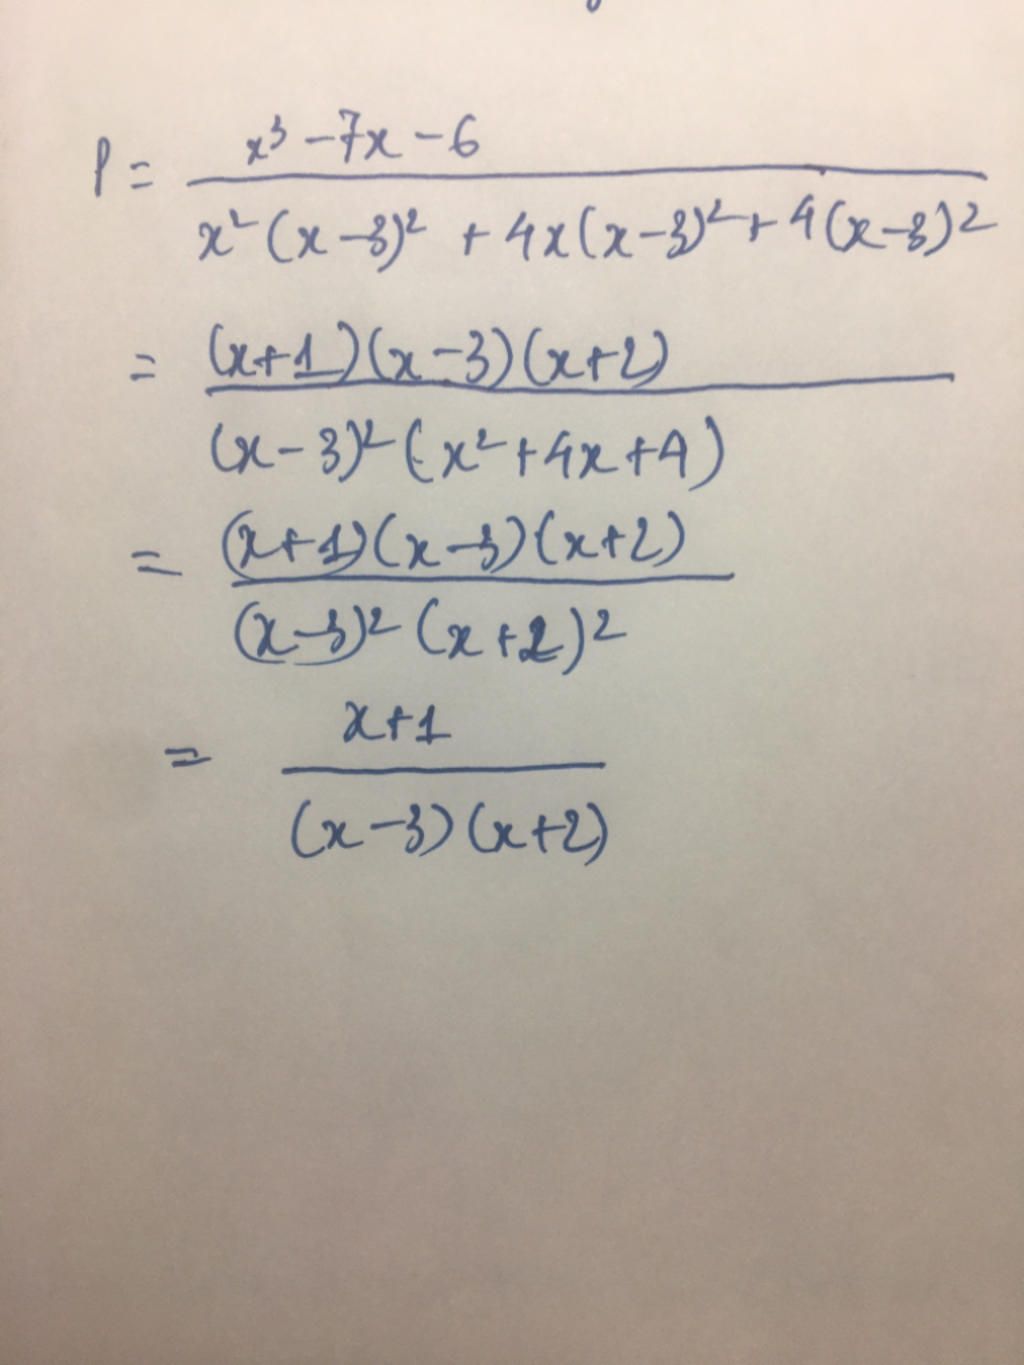 P = x³ - 7x - 6 / x² (x - 3)² + 4x(x - 3)² + 4(x - 3)²
= (x+1)(x-3)(x+2) / (x-3)² (x² + 4x + 4)
= (x+1)(x-3)(x+2) / (x-3)² (x+2)²
= x+1 / (x-3)(x+2)